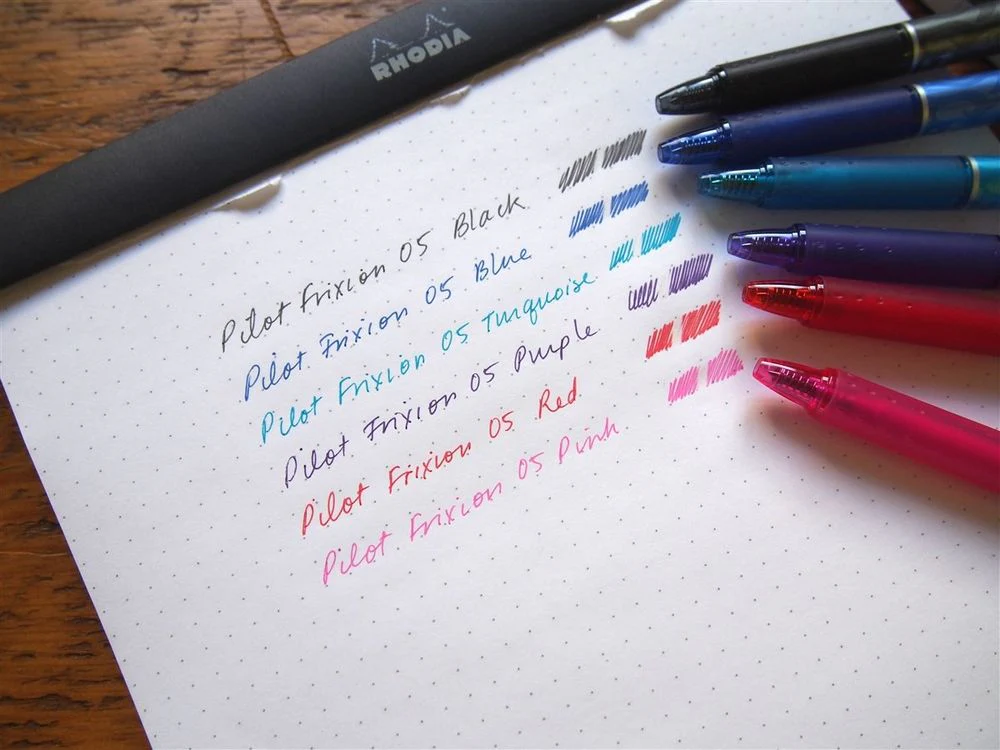 RHODIA
Pilot Frixion 05 Black
Pilot Frixion 05 Blue
Pilot Frixion 05 Turquoise
Pilot Frixion 05 Purple
Pilot Frixion 05 Red
Pilot Frixion 05 Pink